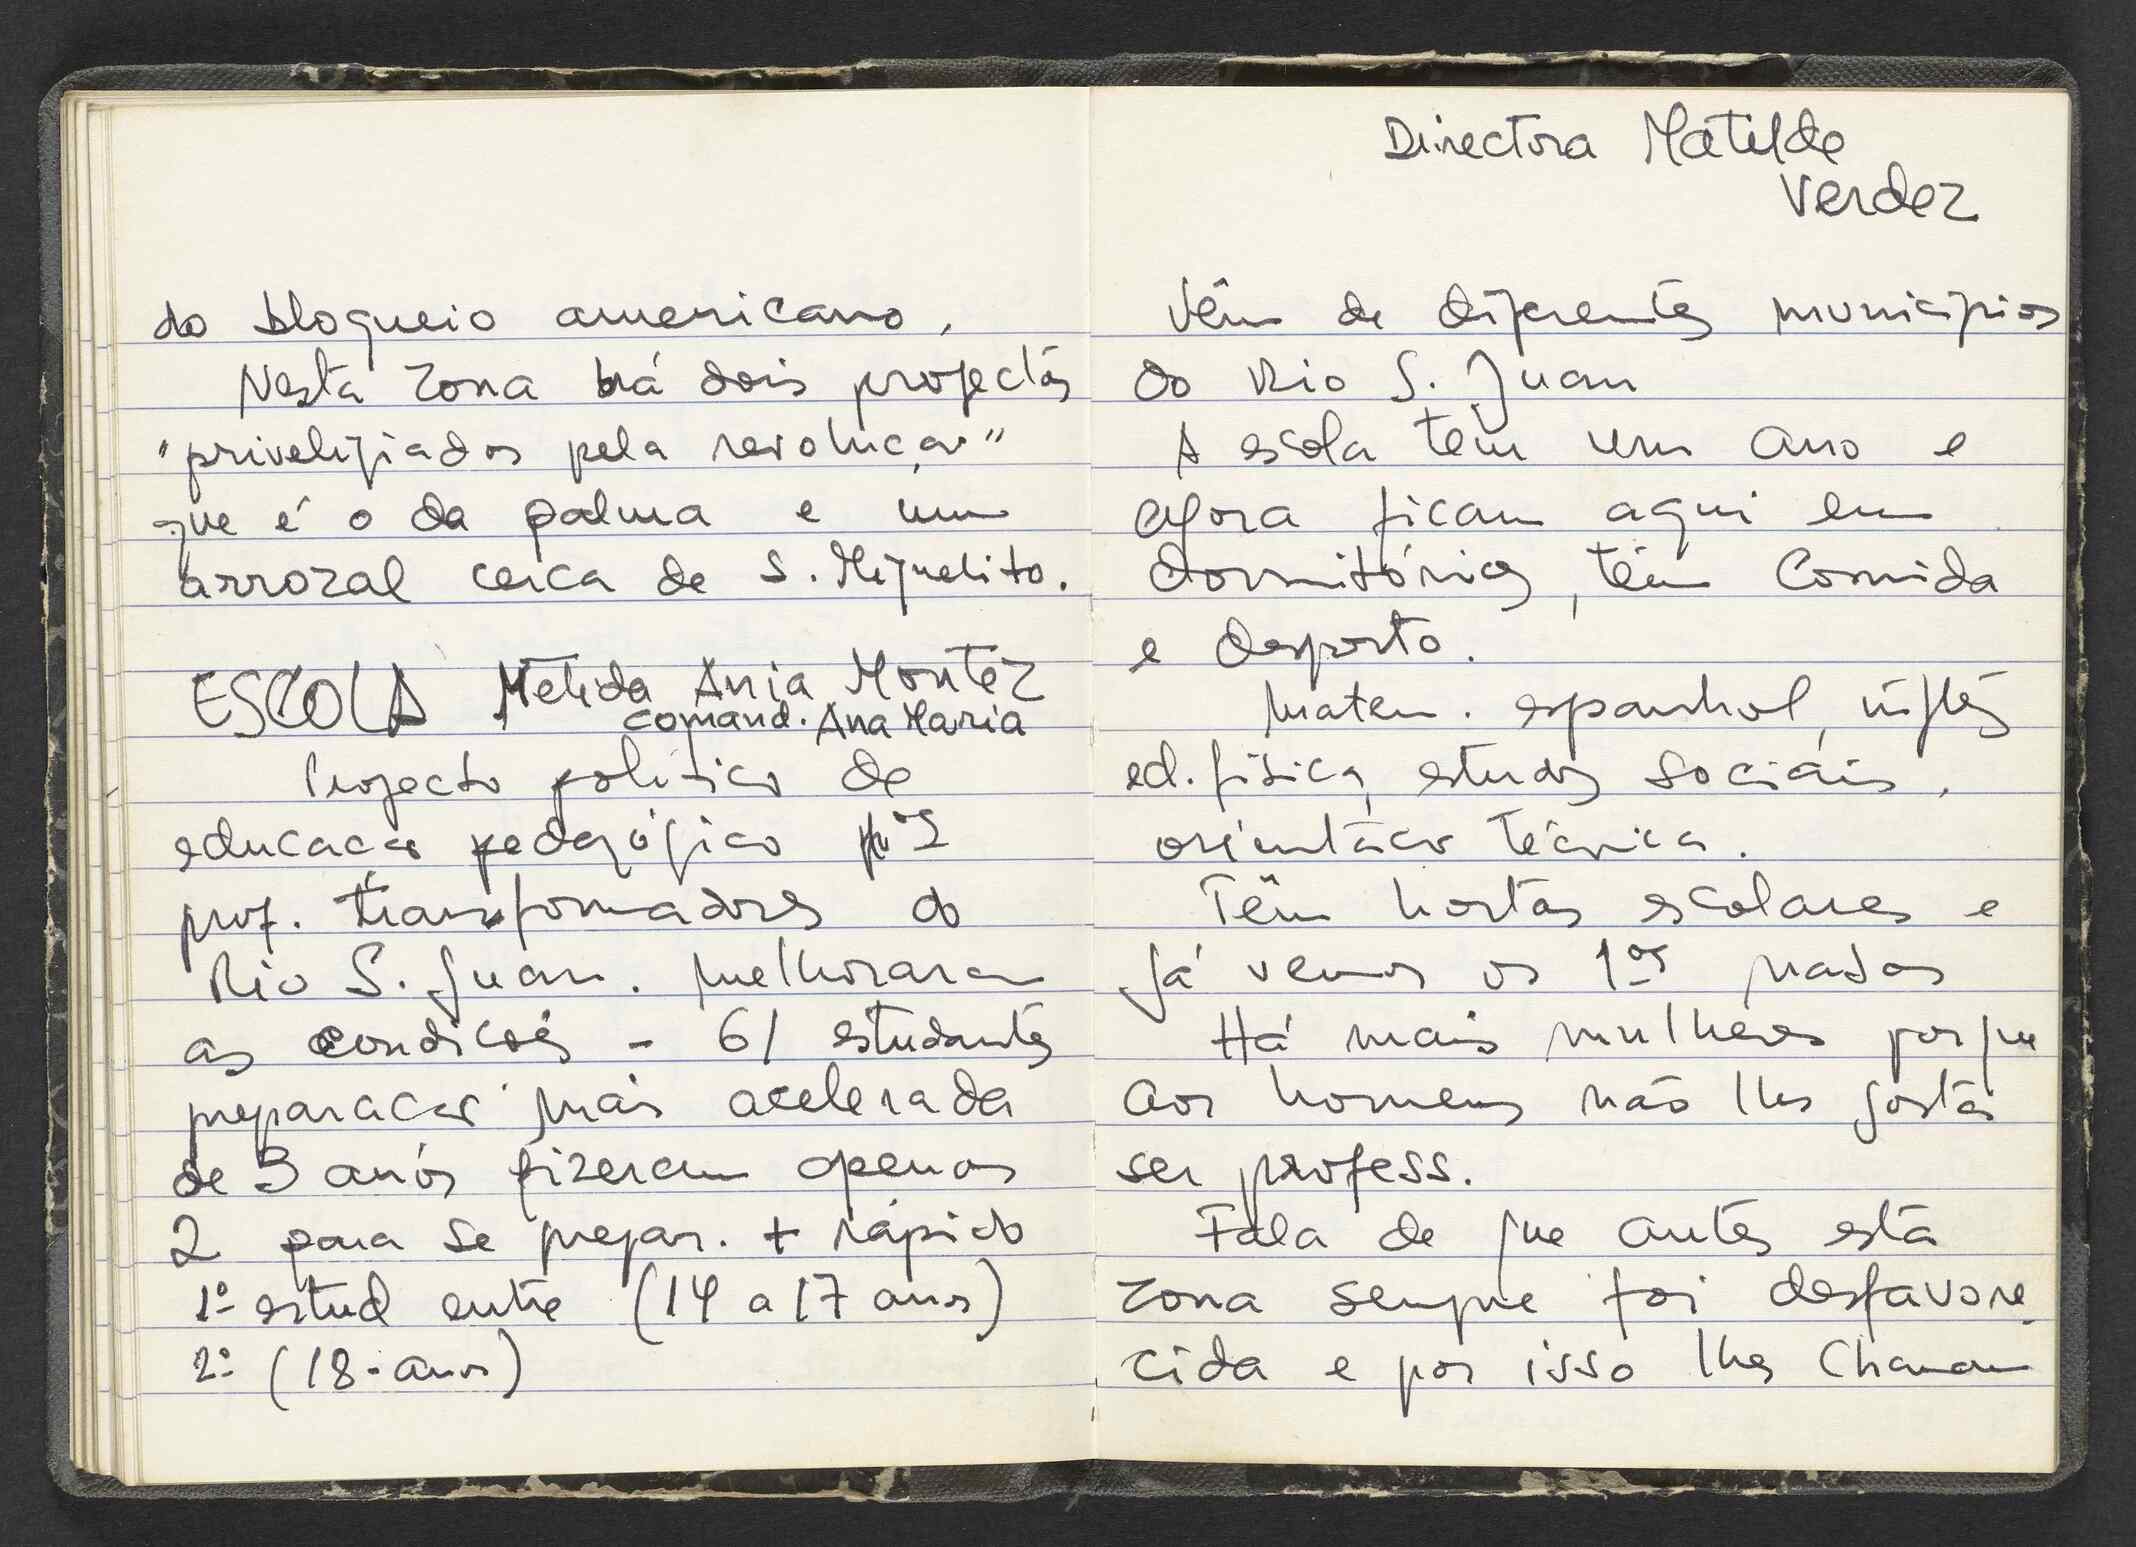 do bloqueio americano.
Nesta zona há dois projectos
"priveligiados pela revolução"
que é o da palma e um
arrozal cerca de S. Miguelito.
ESCOLA Melida Ania Montez
comand. Ana Maria
Projecto político de
educação pedagógico
prof. transformadores do
Rio S. Juan. melhoraram
as condições - 61 estudantes
preparação mais acelerada
de 3 anos fizeram apenas
2 para se prepar. + rápido
1º estud entre (14 a 17 anos)
2º (18-anos)
Directora Matilde
Verdez
Vêm de diferentes municípios
do Rio S. Juan
A escola tem um ano e
agora ficam aqui em
dormitórios, têm Comida
e desporto.
matem. espanhol, inglês
ed. física, estudos sociais,
orientação técnica.
Têm hortas escolares e
já vemos os 1os
Há mais mulheres porque
aos homens não lhes gosta
ser profess.
Fala de que antes esta
zona sempre foi desfavore
cida e por isso lhes Chamam